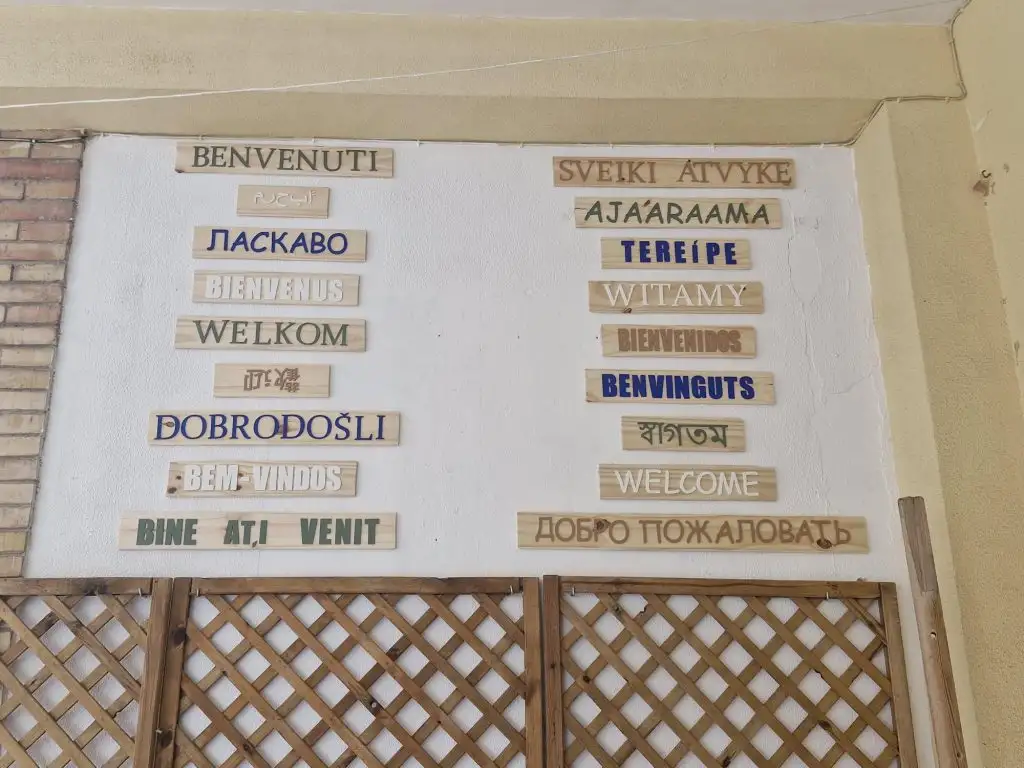 BENVENUTI
ЛАСКАВО
BIENVENUS
WELKOM
歡迎
DOBRODOŠLI
BEM-VINDOS
BINE AT,I VENIT
SVEIKI ATVYKĘ
AJA'ARAAMA
TEREÍPE
WITAMY
BIENVENIDOS
BENVINGUTS
স্বাগতম
WELCOME
ДОБРО ПОЖАЛОВАТЬ